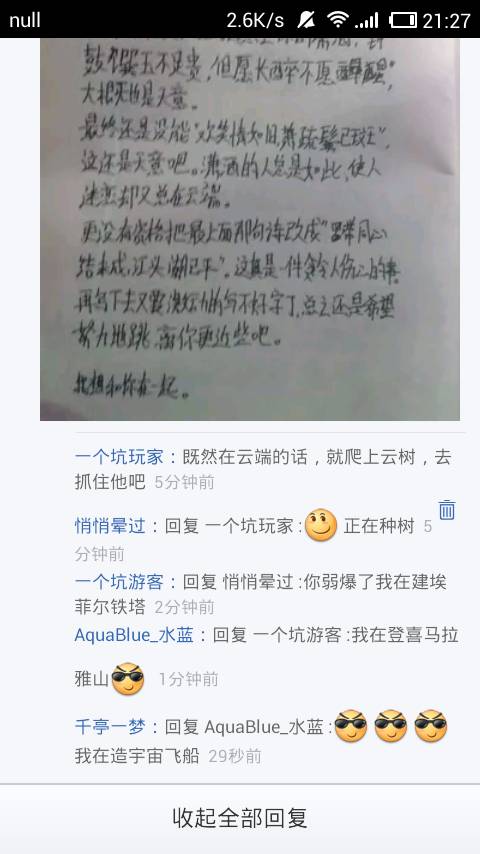 null 2.6K/s 21:27
鼓馔玉不足贵，但愿长醉不愿醒"，
大概也是天意。
最终还是没能"欢笑情如旧，萧疏鬓已斑"，
这还是天意吧。潇洒的人总是如此，使人
迷恋却又总在云端。
更没有资格把最上面那句诗改成"罗带同心
结未成，江头潮已平"。这真是一件令人伤心的事
再写下去又要没力的写不好字了，总之还是希望
努力地跳，离你更近些吧。
我想和你在一起。
一个坑玩家：既然在云端的话，就爬上云树，去
抓住他吧 5分钟前
悄悄晕过：回复 一个坑玩家 : 正在种树 5
分钟前
一个坑游客：回复 悄悄晕过 :你弱爆了我在建埃
菲尔铁塔 2分钟前
AquaBlue_水蓝：回复 一个坑游客 :我在登喜马拉
雅山 1分钟前
千亭一梦：回复 AquaBlue_水蓝 :
我在造宇宙飞船 29秒前
收起全部回复